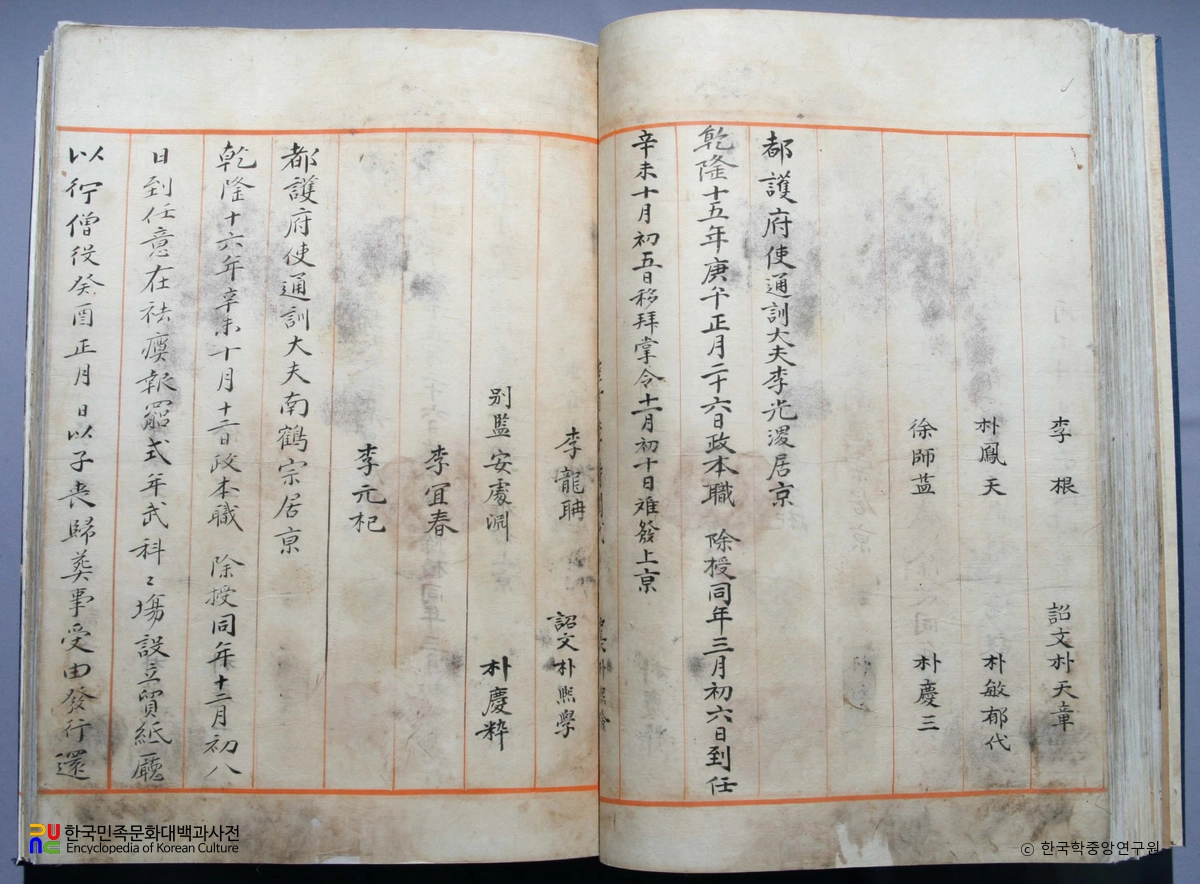 李根 詔文朴天章
朴鳳天 朴敏郁代
徐師 朴慶三
都護府使通訓大夫李光瀷居京
乾隆十五年庚午正月二十六日政本職 除授同年三月初六日到任
辛未十月初五日移拜掌令十一月初十日離發上京
李龍 詔文朴熙學
別監安處淵 朴慶粹
李宜春
李元杞
都護府使通訓大夫南鶴宗居京
乾隆十六年辛未十月十二日政本職 除授同年十二月初八
日到任意在祛瘼報罷式年武科〻場設立貿紙廳
以 僧役癸酉正月 日以子喪歸葬事受由發行還
한국민족문화대백과사전
Encyclopedia of Korean Culture
ⓒ 한국학중앙연구원